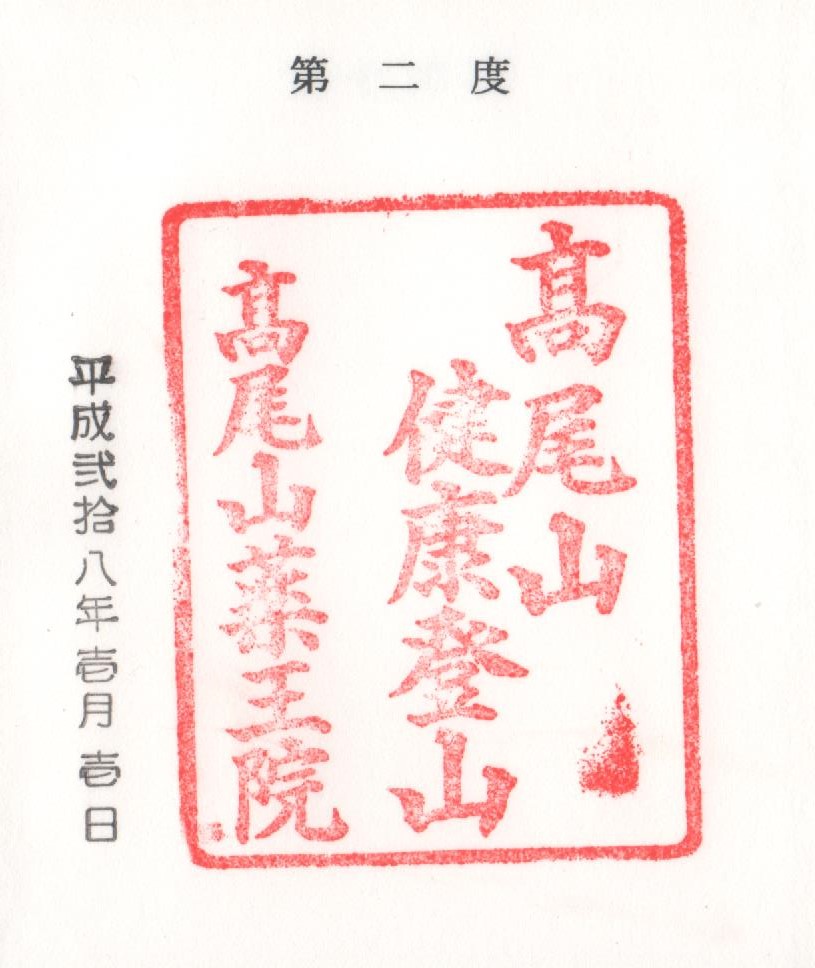 第二度
髙尾山
健康登山
髙尾山薬王院
平成弐拾八年壱月壱日